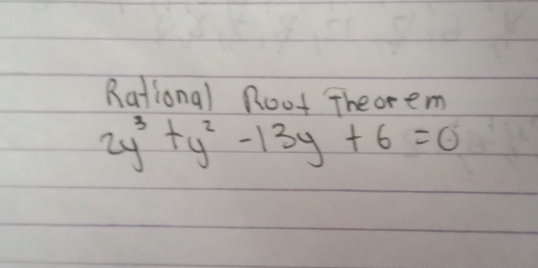 Rational Root Theorem
2y³ + y² - 13y + 6 = 0